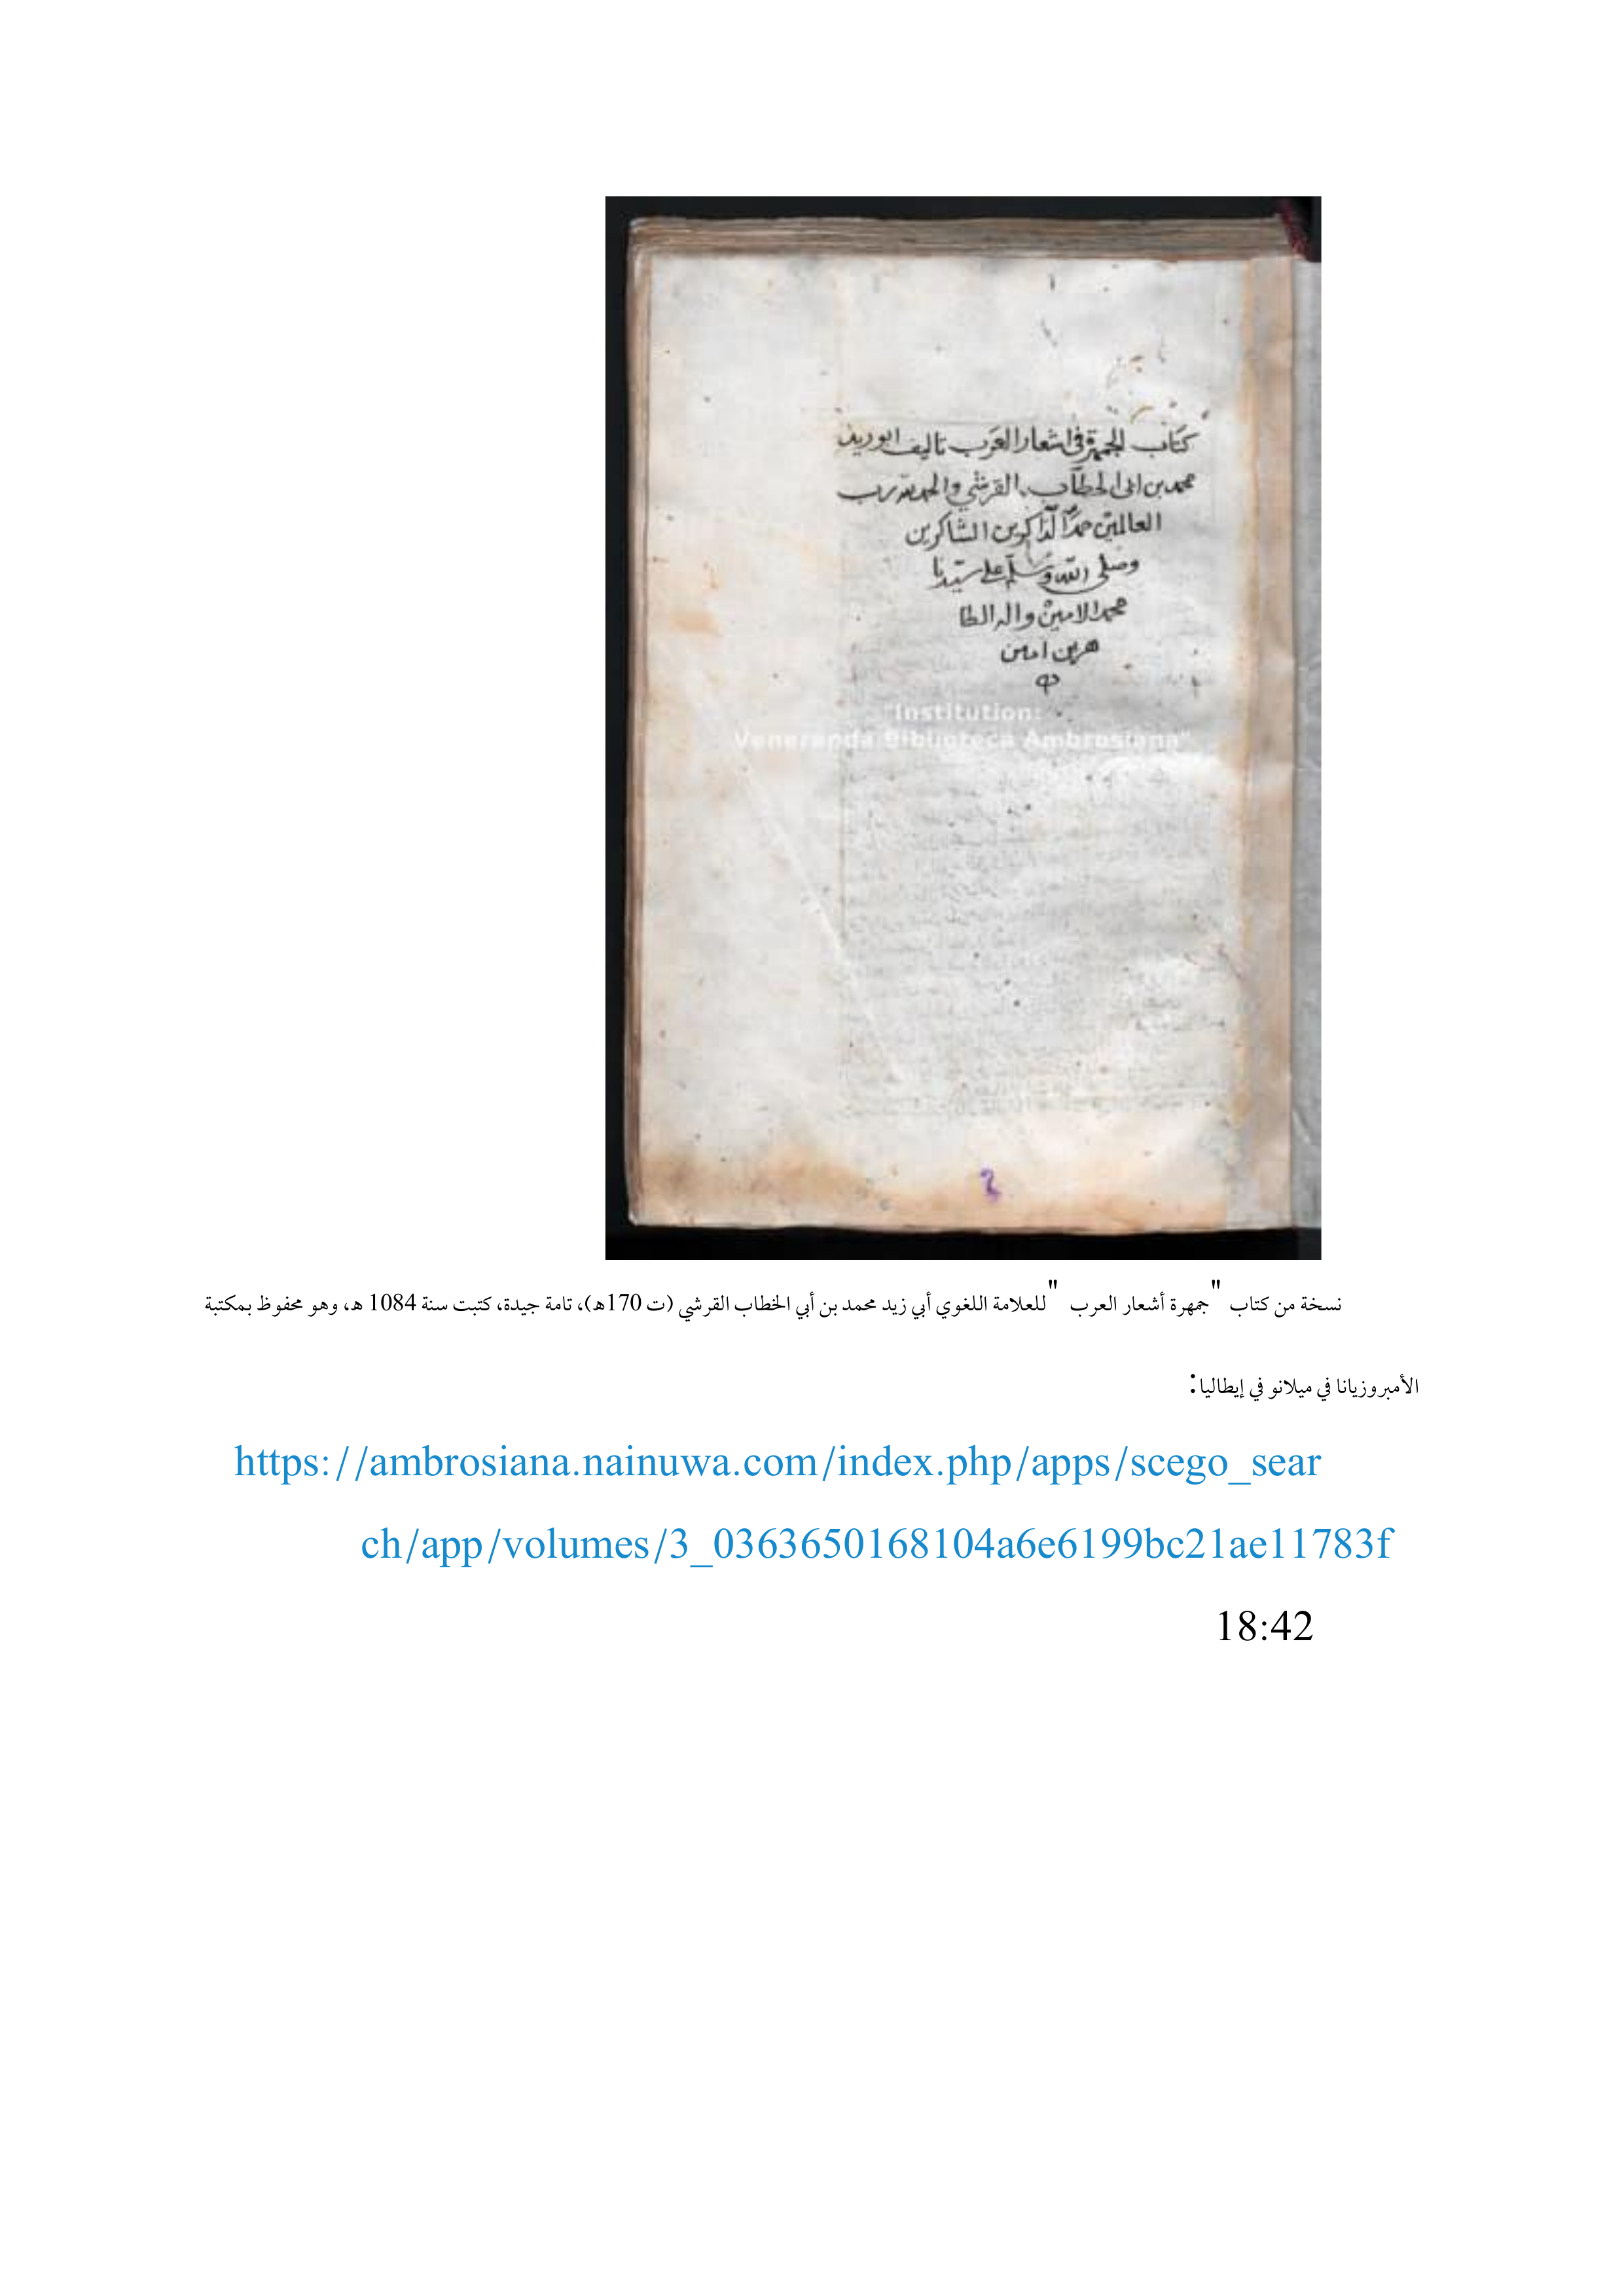 كتاب الجمهرة في اشعار العرب تاليف ابو زيد
محمد بن ابى الخطاب القرشي والحمد لله رب
العالمين حمدًا لذاكرين الشاكرين
وصلى الله وسلم على سيدنا
محمد الامين واله الطا
هرين امين
"Institution:
Veneranda Biblioteca Ambrosiana"
نسخة من كتاب "جمهرة أشعار العرب" للعلامة اللغوي أبي زيد محمد بن أبي الخطاب القرشي (ت 170هـ)، تامة جيدة، كتبت سنة 1084 هـ، وهو محفوظ بمكتبة
الأمبروزيانا في ميلانو في إيطاليا:
https://ambrosiana.nainuwa.com/index.php/apps/scego_sear
ch/app/volumes/3_0363650168104a6e6199bc21ae11783f
18:42